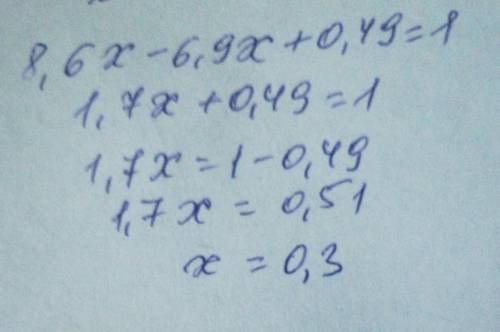 8,6x-6,9x+0,49=1
1,7x+0,49=1
1,7x=1-0,49
1,7x=0,51
x=0,3